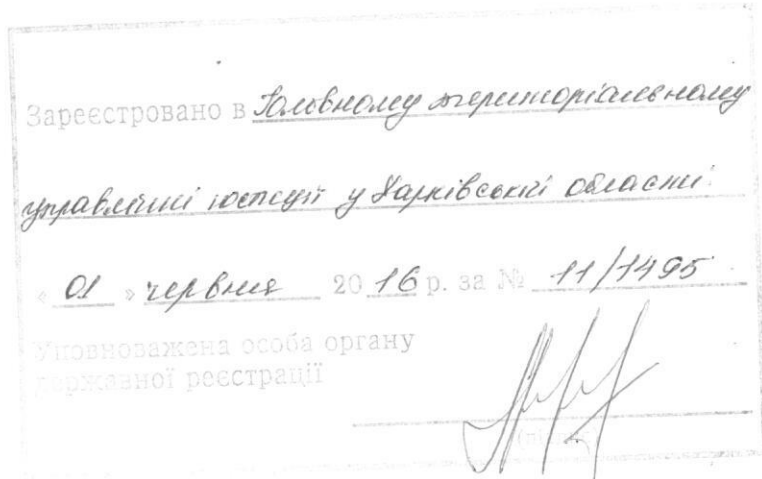 Зареєстровано в Головному територіальному
управлінні юстиції у Харківській області
« 01 » червня 2016 р. за № 11/1495
Уповноважена особа органу
державної реєстрації
(підпис)